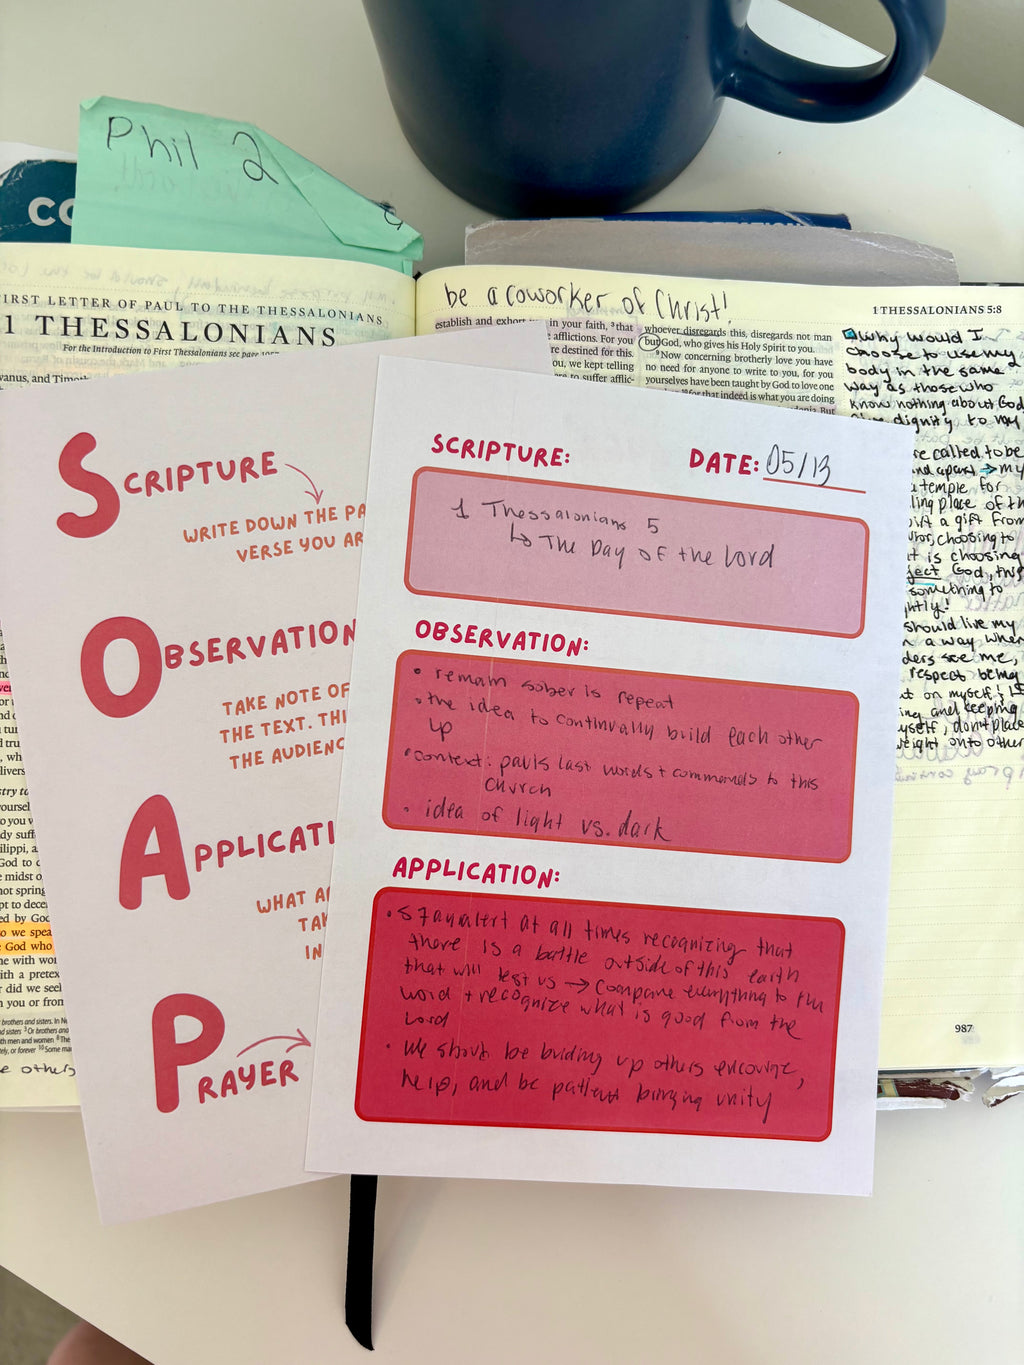 Phil 2
CO
be a coworker of Christ!
FIRST LETTER OF PAUL TO THE THESSALONIANS
1 THESSALONIANS
For the Introduction to First Thessalonians see page
vanus, and Timoth
establish and exhort
in your faith, ³ that
afflictions. For you
re destined for this.
ou, we kept telling
to suffer afflic-
whoever disregards this, disregards not man
but God, who gives his Holy Spirit to you.
⁹Now concerning brotherly love you have
no need for anyone to write to you, for you
yourselves have been taught by God to love one
for that indeed is what you are doing
1 THESSALONIANS 5:8
Why would I
choose to use my
body in the same
way as those who
know nothing about God,
dignity to my
re called to be
and apart → my
a temple for
ling place of the
a gift from
choosing to
it is choosing
God, this
something to
ghtly!
should live my
a way where
ders see me,
respect being
t on myself!
ing and keeping
myself, don't place
weight onto other
987
SCRIPTURE
WRITE DOWN THE PA
VERSE YOU AR
OBSERVATION
TAKE NOTE OF
THE TEXT. THI
THE AUDIENC
APPLICATI
WHAT A
TAK
IN
PRAYER
SCRIPTURE:
DATE: 05/13
1 Thessalonians 5
↳ The Day of the Lord
OBSERVATION:
• remain sober is repeat
• the idea to continually build each other
up
• context: pauls last words + commands to this
church
• idea of light vs. dark
APPLICATION:
• stay alert at all times recognizing that
there is a battle outside of this earth
that will test us → compare everything to the
word + recognize what is good from the
Lord
• we should be building up others encourage,
help, and be patient bringing unity
to we spea
God who
ne with wor
ith a pretex
r did we seel
n you or fron
e others